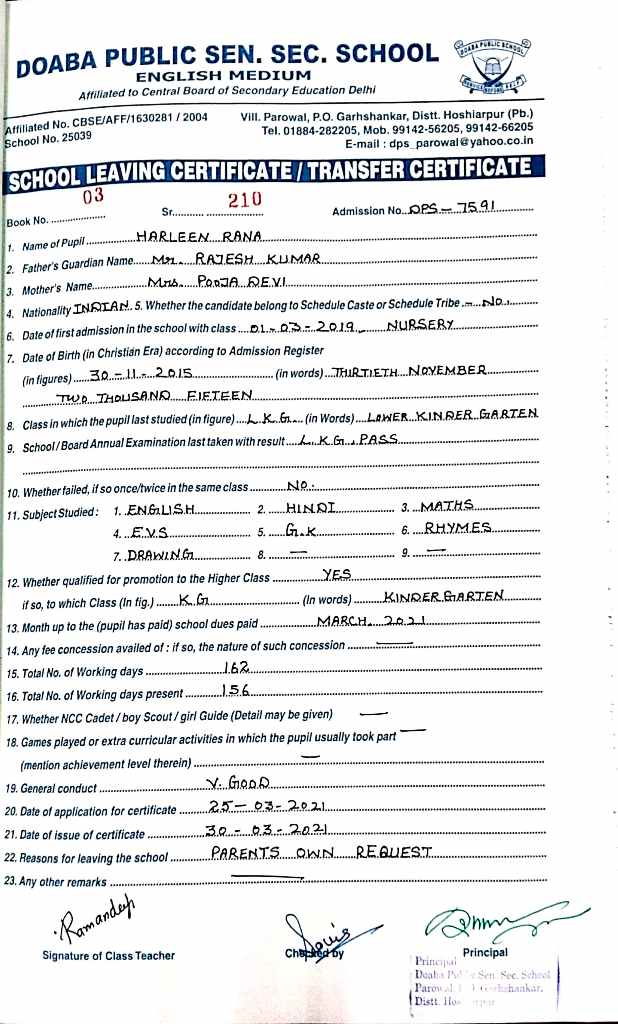 DOABA PUBLIC SEN. SEC. SCHOOL
DOABA PUBLIC SCHOOL
ENGLISH MEDIUM
Affiliated to Central Board of Secondary Education Delhi
Affiliated No. CBSE/AFF/1630281 / 2004
School No. 25039
Vill. Parowal, P.O. Garhshankar, Distt. Hoshiarpur (Pb.)
Tel. 01884-282205, Mob. 99142-56205, 99142-66205
E-mail : dps_parowal@yahoo.co.in
SCHOOL LEAVING CERTIFICATE / TRANSFER CERTIFICATE
Book No. 03 Sr. 210 Admission No. DPS-7591
1. Name of Pupil HARLEEN RANA
2. Father's Guardian Name Mr. RAJESH KUMAR
3. Mother's Name Mrs. POOJA DEVI
4. Nationality INDIAN. 5. Whether the candidate belong to Schedule Caste or Schedule Tribe.- No.
6. Date of first admission in the school with class 01-03-2019 NURSERY
7. Date of Birth (in Christian Era) according to Admission Register
(in figures) 30-11-2015 (in words) THIRTIETH NOVEMBER
TWO THOUSAND FIFTEEN
8. Class in which the pupil last studied (in figure) L.K.G. (in Words) LOWER KINDER GARTEN
9. School / Board Annual Examination last taken with result L.K.G. PASS
10. Whether failed, if so once/twice in the same class No.
11. Subject Studied : 1. ENGLISH 2. HINDI 3. MATHS
4. E.V.S 5. G.K 6. RHYMES
7. DRAWING 8. — 9. —
12. Whether qualified for promotion to the Higher Class YES
if so, to which Class (In fig.) K.G (In words) KINDER GARTEN
13. Month up to the (pupil has paid) school dues paid MARCH. 2021
14. Any fee concession availed of : if so, the nature of such concession —
15. Total No. of Working days 162
16. Total No. of Working days present 156
17. Whether NCC Cadet / boy Scout / girl Guide (Detail may be given) —
18. Games played or extra curricular activities in which the pupil usually took part —
(mention achievement level therein) —
19. General conduct V. GOOD
20. Date of application for certificate 25-03-2021
21. Date of issue of certificate 30-03-2021
22. Reasons for leaving the school PARENTS OWN REQUEST
23. Any other remarks —
Ramandeep
Signature of Class Teacher
Checked by
Principal
Principal
Doaba Sen. Sec. School
Parowal, Garhshankar,
Distt.